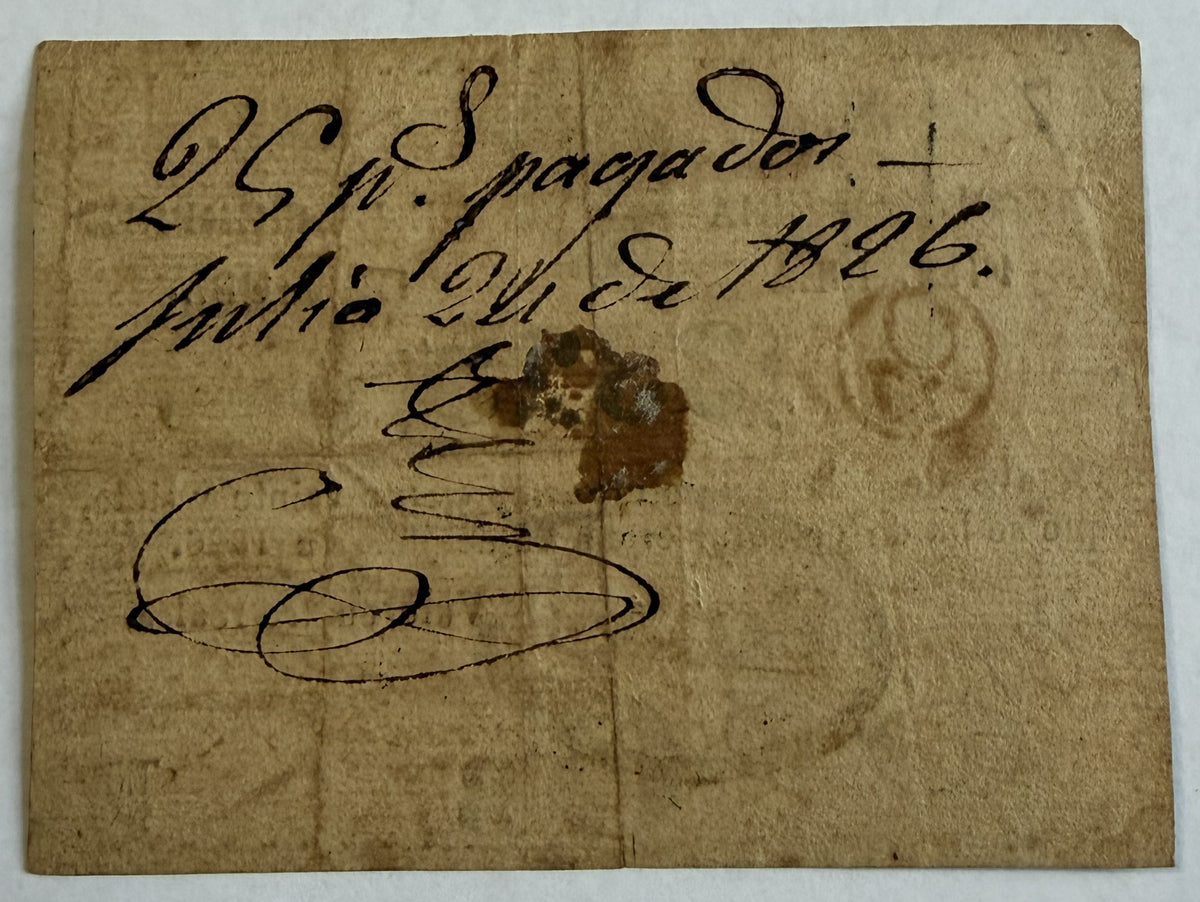 25 p.s pagados
Julio 24 de 1826.